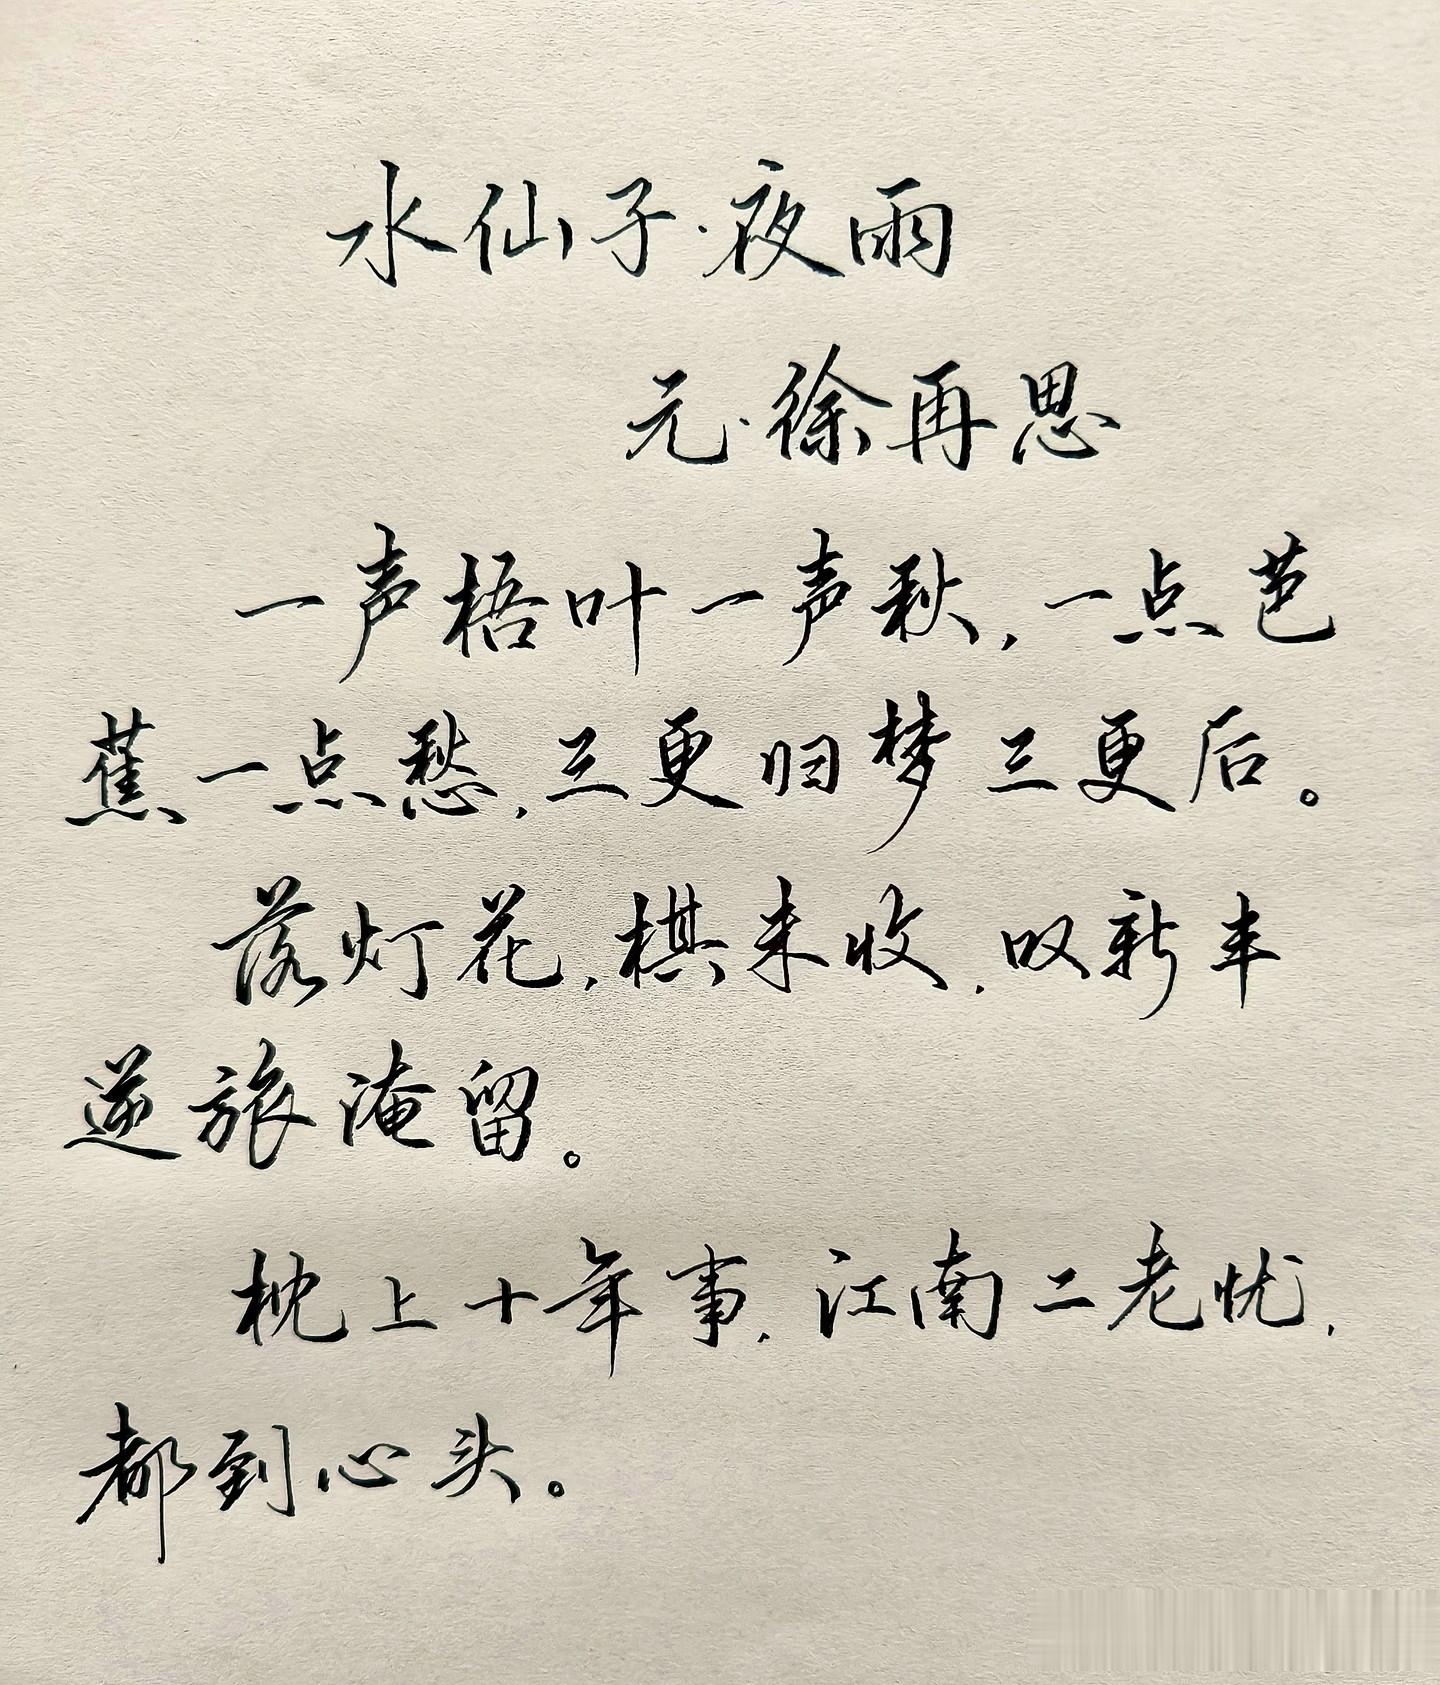 水仙子·夜雨
元·徐再思
一声梧叶一声秋,一点芭
蕉一点愁,三更归梦三更后。
落灯花,棋未收,叹新丰
逆旅淹留。
枕上十年事,江南二老忧,
都到心头。